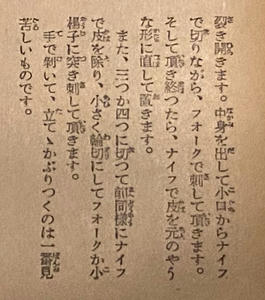 裂き開きます。中身を出して小口からナイフ
で切りながら、フォークで刺して頂きます。
そして頂き終つたら、ナイフで皮を元のやう
な形に直して置きます。
また、三つか四つに切つて前同様にナイフ
で皮を除り、小さく輪切にしてフォークか小
楊子に突き刺して頂きます。
手で剝いて、立てゝかぶりつくのは一番見
苦しいものです。